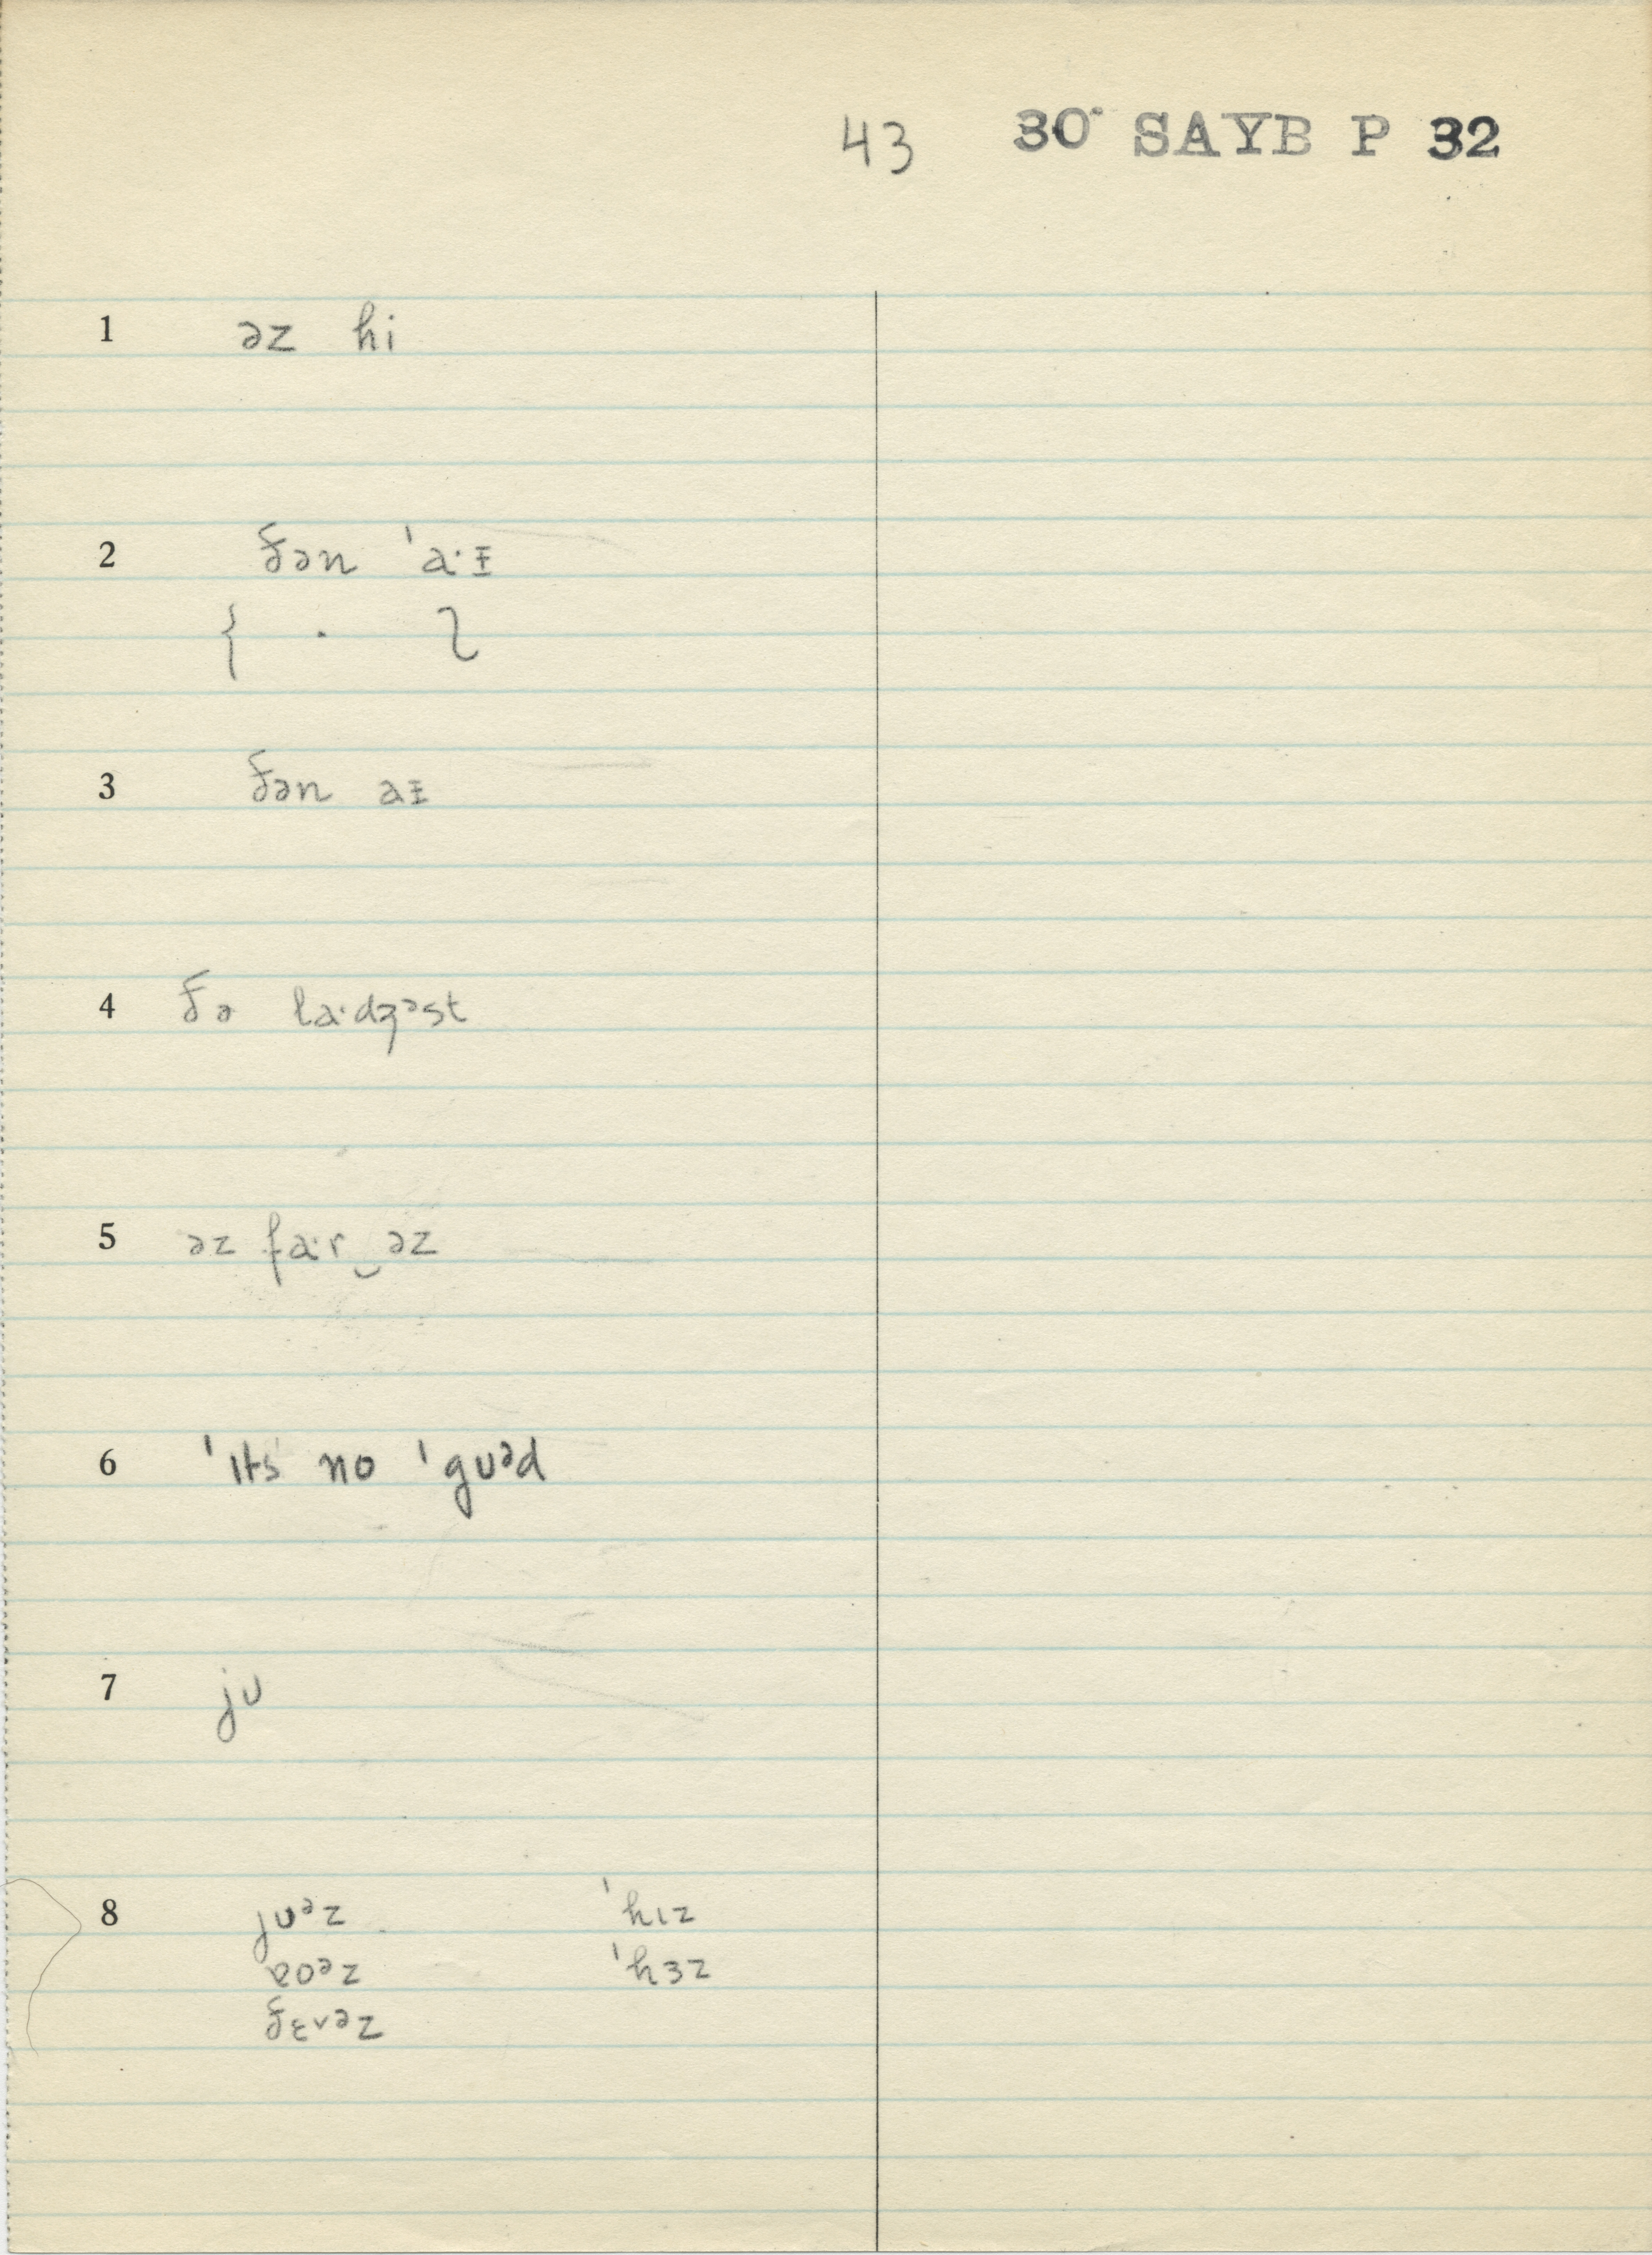 43 30 SAYB P 32
1 əz hi
2 ðən ˈa·ɪ̵
{ · }
3 ðən aɪ̵
4 ðə la·dʒᵊst
5 əz fa·r‿əz
6 ˈɪts no ˈgʊᵊd
7 jʊ
8 jʊᵊz ˈhɪz
ɐoᵊz ˈhɜz
ðɛvəz